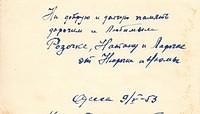 На добрую и долгую память
дорогим и любимым
Розочке, Наташе и Ларочке
от Нюрочки и Ромы
Одесса 9/V-53